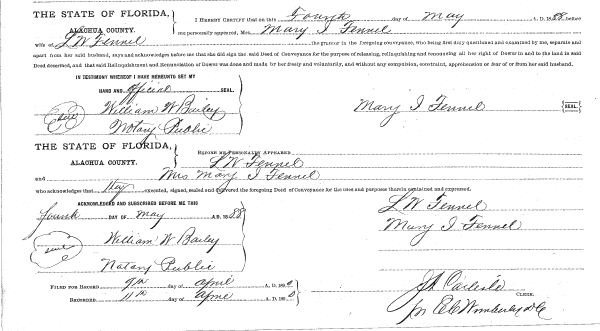 THE STATE OF FLORIDA,
ALACHUA COUNTY.
I HEREBY CERTIFY that on this Fourth day of May A. D. 1888, before
me personally appeared, Mrs. Mary I Fennel
wife of L W Fennel the grantor in the foregoing conveyance, who being first duly questioned and examined by me, separate and
apart from her said husband, says and acknowledges before me that she did sign the said Deed of Conveyance for the purpose of releasing, relinquishing and renouncing all her right of Dower in and to the land in said
Deed described, and that said Relinquishment and Renunciation of Dower was done and made by her freely and voluntarily, and without any compulsion, constraint, apprehension or fear of or from her said husband.
IN TESTIMONY WHEREOF I HAVE HEREUNTO SET MY
HAND AND official SEAL.
William W Bailey
Notary Public
seal
Mary I Fennel SEAL.
THE STATE OF FLORIDA,
ALACHUA COUNTY.
BEFORE ME PERSONALLY APPEARED L W Fennel
and Mrs Mary I Fennel
who acknowledges that they executed, signed, sealed and delivered the foregoing Deed of Conveyance for the uses and purposes therein contained and expressed.
ACKNOWLEDGED AND SUBSCRIBED BEFORE ME THIS
fourth DAY OF May A. D. 1888
William W Bailey
Notary Public
seal
L W Fennel
Mary I Fennel
FILED FOR RECORD 9th day of April A. D. 1890
RECORDED 11th day of April A. D. 1890
J A Carlisle
CLERK.
pr E C Wimberly DC